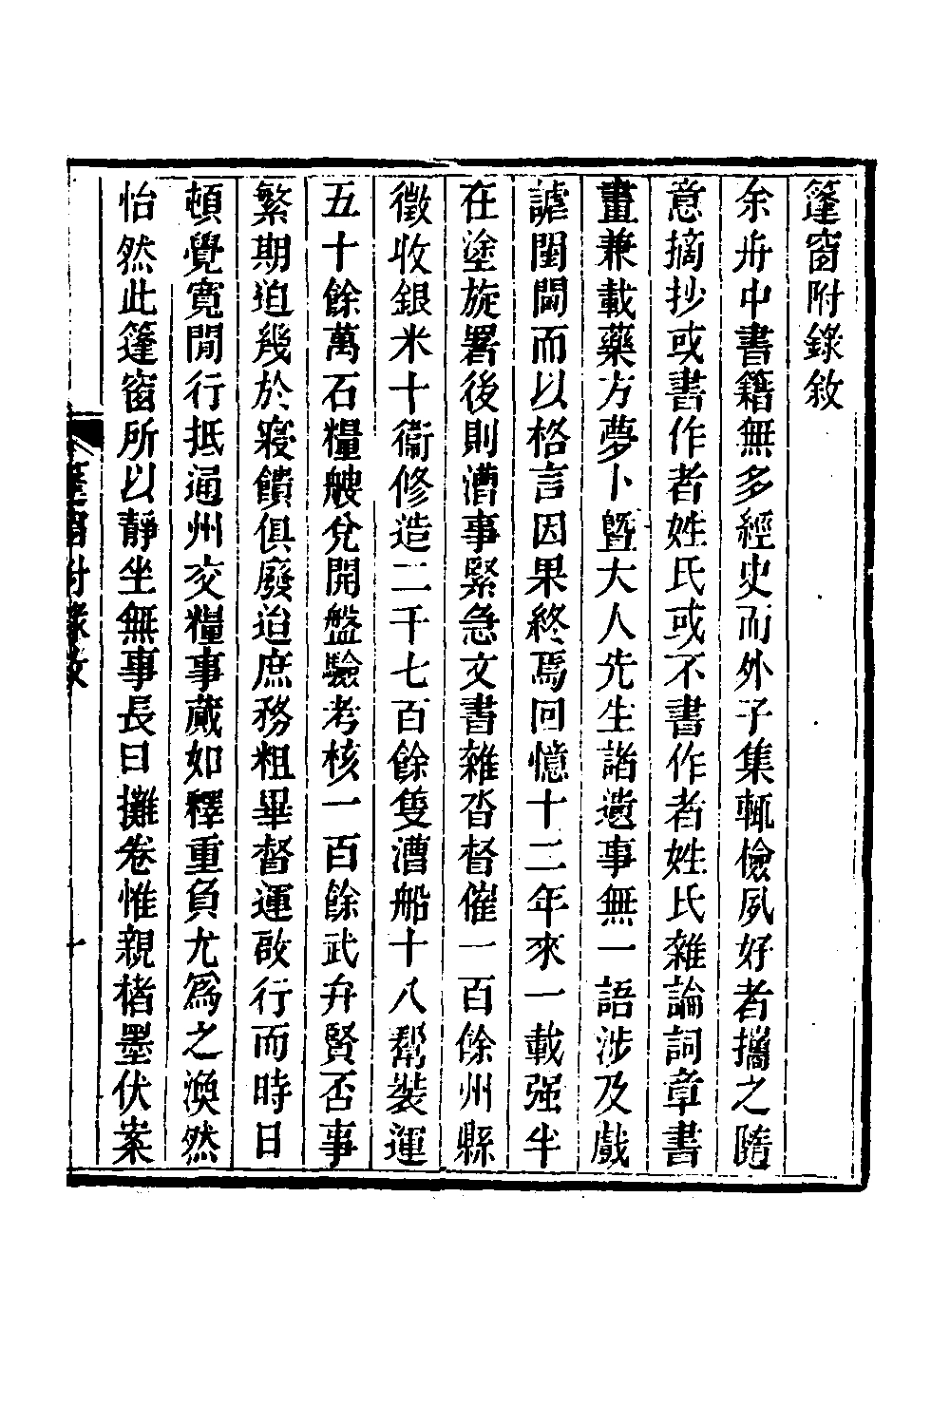 篷窗附錄敘
余舟中書籍無多經史而外子集輒儉夙好者攜之隨
意摘抄或書作者姓氏或不書作者姓氏雜論詞章書
畫兼載藥方夢卜曁大人先生諧遺事無一語涉及戲
謔閨閫而以格言因果終焉回憶十二年來一載强半
在塗旋署後則漕事緊急文書雜沓督催一百餘州縣
徵收銀米十衞修造二千七百餘隻漕船十八幫裝運
五十餘萬石糧艘兌開盤驗考核一百餘武弁賢否事
繁期迫幾於寢饋俱廢迨庶務粗畢督運啟行而時日
頓覺寬閒行抵通州交糧事蕆如釋重負尤爲之渙然
怡然此篷窗所以靜坐無事長日攤卷惟親楮墨伏案
篷窗附錄敘